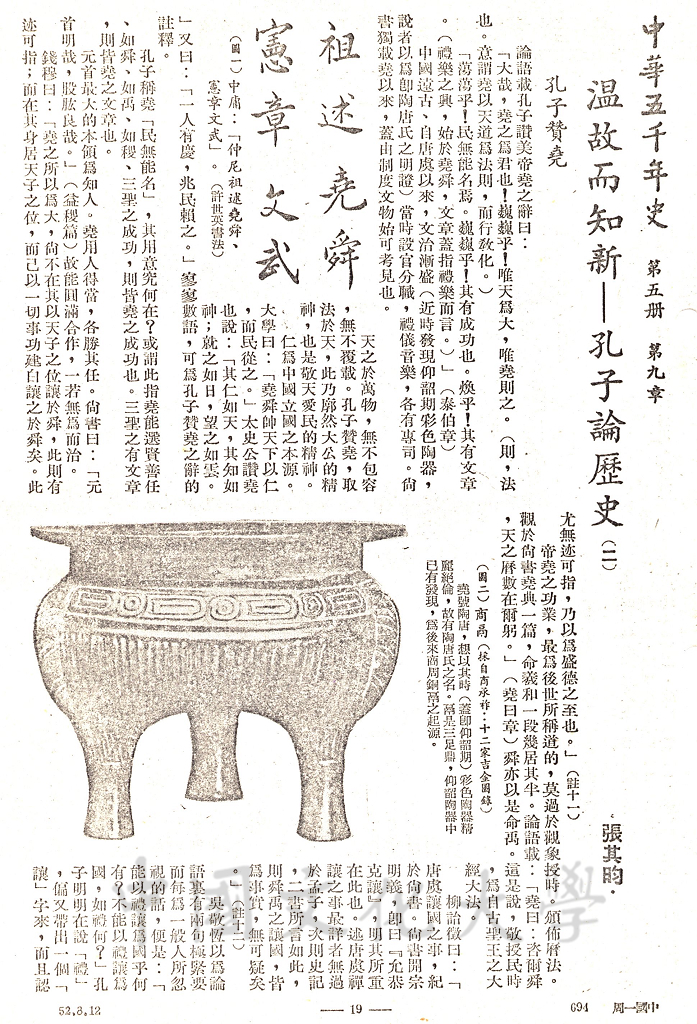 中華五千年史　第五册　第九章
溫故而知新——孔子論歷史（二）
張其昀
孔子贊堯
論語載孔子讚美帝堯之辭曰：
「大哉，堯之為君也！巍巍乎！唯天為大，唯堯則之。（則，法
也。意謂堯以天道為法則，而行教化。）
「蕩蕩乎！民無能名焉。巍巍乎！其有成功也。煥乎！其有文章
。（禮樂之興，始於堯舜，文章蓋指禮樂而言。）」（泰伯章）
中國遠古、自唐虞以來，文治漸盛（近時發現仰韶期彩色陶器，
說者以為卽陶唐氏之明證）當時設官分職，禮儀音樂，各有專司。尚
書獨載堯以來，蓋由制度文物始可考見也。
祖述堯舜
憲章文武
（圖一）中庸：「仲尼祖述堯舜、
憲章文武」。（許世英書法）
天之於萬物，無不包容
，無不覆載。孔子贊堯，取
法於天，此乃廓然大公的精
神，也是敬天愛民的精神。
仁為中國立國之本源。
大學曰：「堯舜帥天下以仁
，而民從之。」太史公贊堯
也說：「其仁如天，其知如
神；就之如日，望之如雲。
」又曰：「一人有慶，兆民賴之。」寥寥數語，可為孔子贊堯之辭的
註釋。
孔子稱堯「民無能名」，其用意究何在？或謂此指堯能選賢善任
、如舜、如禹、如稷、三聖之成功，則皆堯之成功也。三聖之有文章
，則皆堯之文章也。
元首最大的本領為知人。堯用人得當，各勝其任。尚書曰：「元
首明哉，股肱良哉。」（益稷篇）故能圓滿合作，一若無為而治。
錢穆曰：「堯之所以為大，尚不在其以天子之位讓於舜，此則有
迹可指；而在其身居天子之位，而己以一切事功建白讓之於舜矣。此
尤無迹可指，乃以為盛德之至也。」（註十一）
帝堯之功業，最為後世所稱道的，莫過於觀象授時。頒佈曆法。
觀於尚書堯典一篇，命羲和一段幾居其半。論語載：「堯曰：咨爾舜
，天之曆數在爾躬。」（堯曰章）舜亦以是命禹。這是說，敬授民時
，為自古聖王之大
經大法。
（圖二）商鬲（採自商承祚：十二家吉金圖錄）
堯號陶唐，想以其時（蓋卽仰韶期）彩色陶器精
麗絕倫，故有陶唐氏之名。鬲是三足鼎，仰韶陶器中
已有發現，為後來商周銅鬲之起源。
柳詒徵曰：「
唐虞讓國之事，紀
於尚書。尚書開宗
明義，卽曰『允恭
克讓』，明其所重
在此也。述唐虞禪
讓之事最詳者無過
於孟子，次則史記
，二書所言如此，
則舜禹之讓國，皆
為事實，無可疑矣
。」（註十二）
吳敬恆以為論
語裏有兩句極緊要
而每為一般人所忽
視的話，便是：「
能以禮讓為國乎何
有？不能以禮讓為
國，如禮何？」孔
子明明在說「禮」
，偏又帶出一個「
讓」字來，而且認
52,8,12
— 19 —
694　周一國中